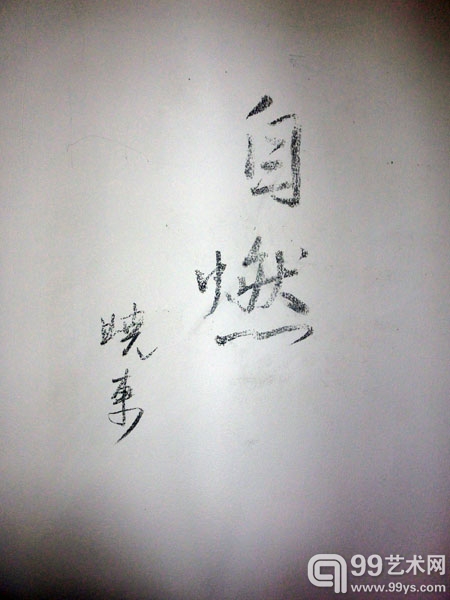 自燃
晓东
99艺术网
www.99ys.com